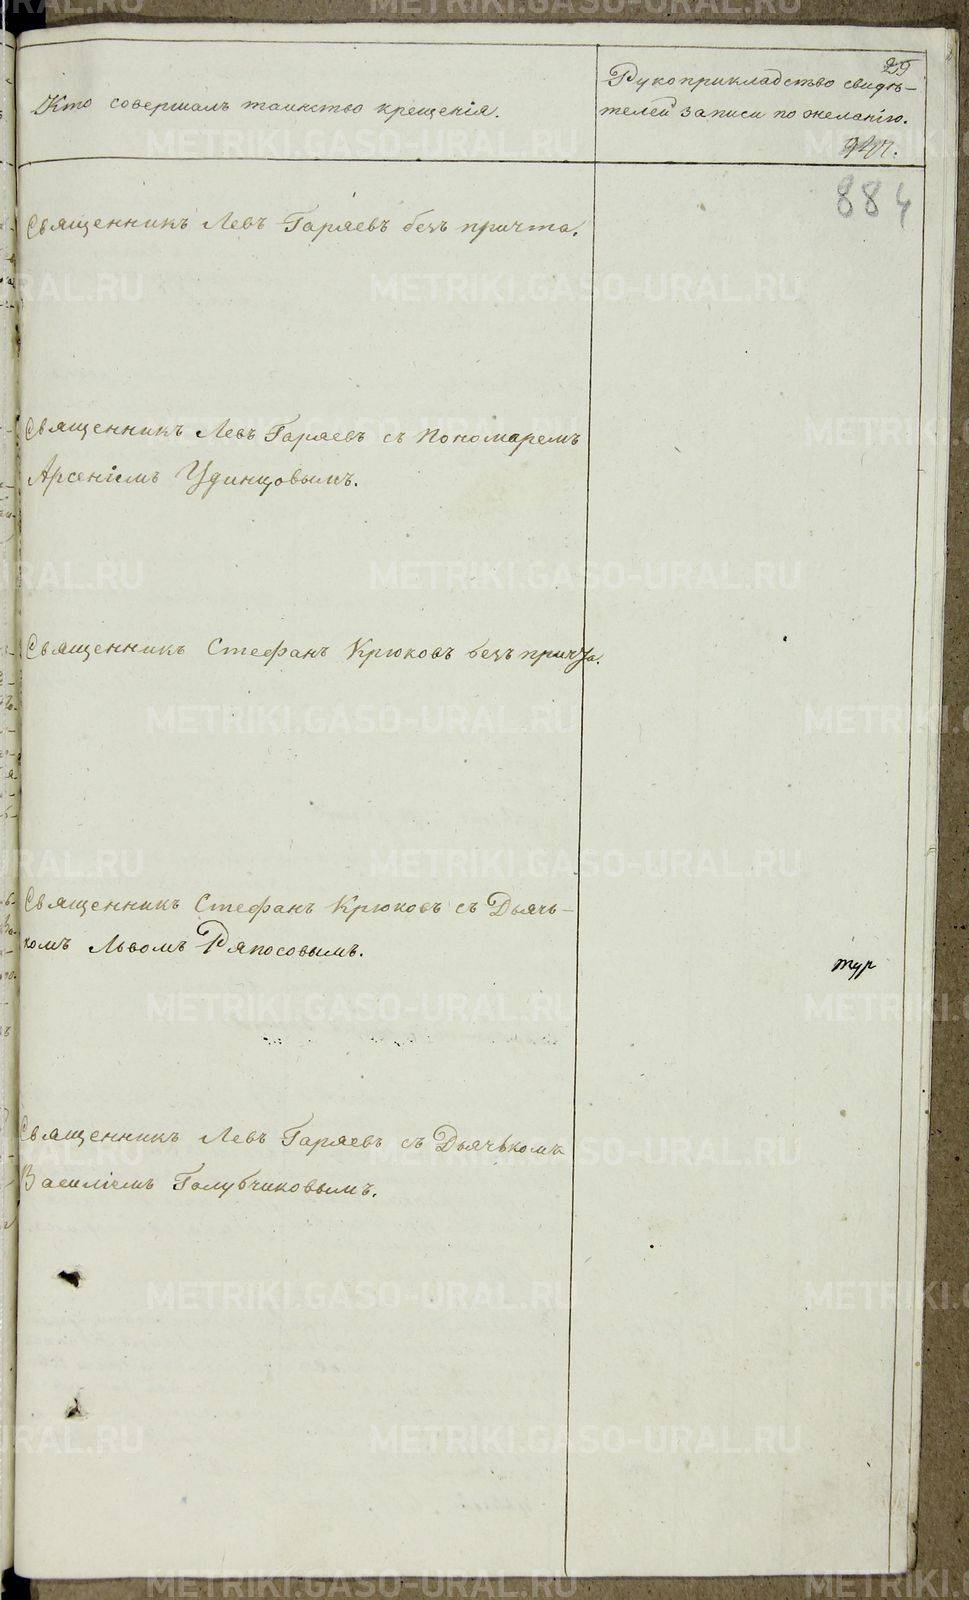 29
Кто совершалъ таинство крещенія.
Рукоприкладство свидѣ-
телей записи по желанію.
884
Священникъ Левъ Гаряевъ безъ причта.
Священникъ Левъ Гаряевъ съ Пономаремъ
Арсеніемъ Удинцовымъ.
Священникъ Стефанъ Крюковъ безъ причта.
Священникъ Стефанъ Крюковъ съ Дьячь-
комъ Львомъ Ряпосовымъ.
Священникъ Левъ Гаряевъ съ Дьячькомъ
Василіемъ Голубчиковымъ.
METRIKI.GASO-URAL.RU